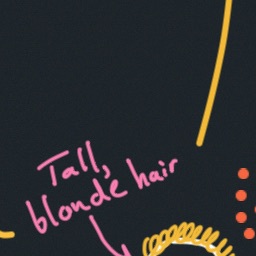 Tall,
blonde hair